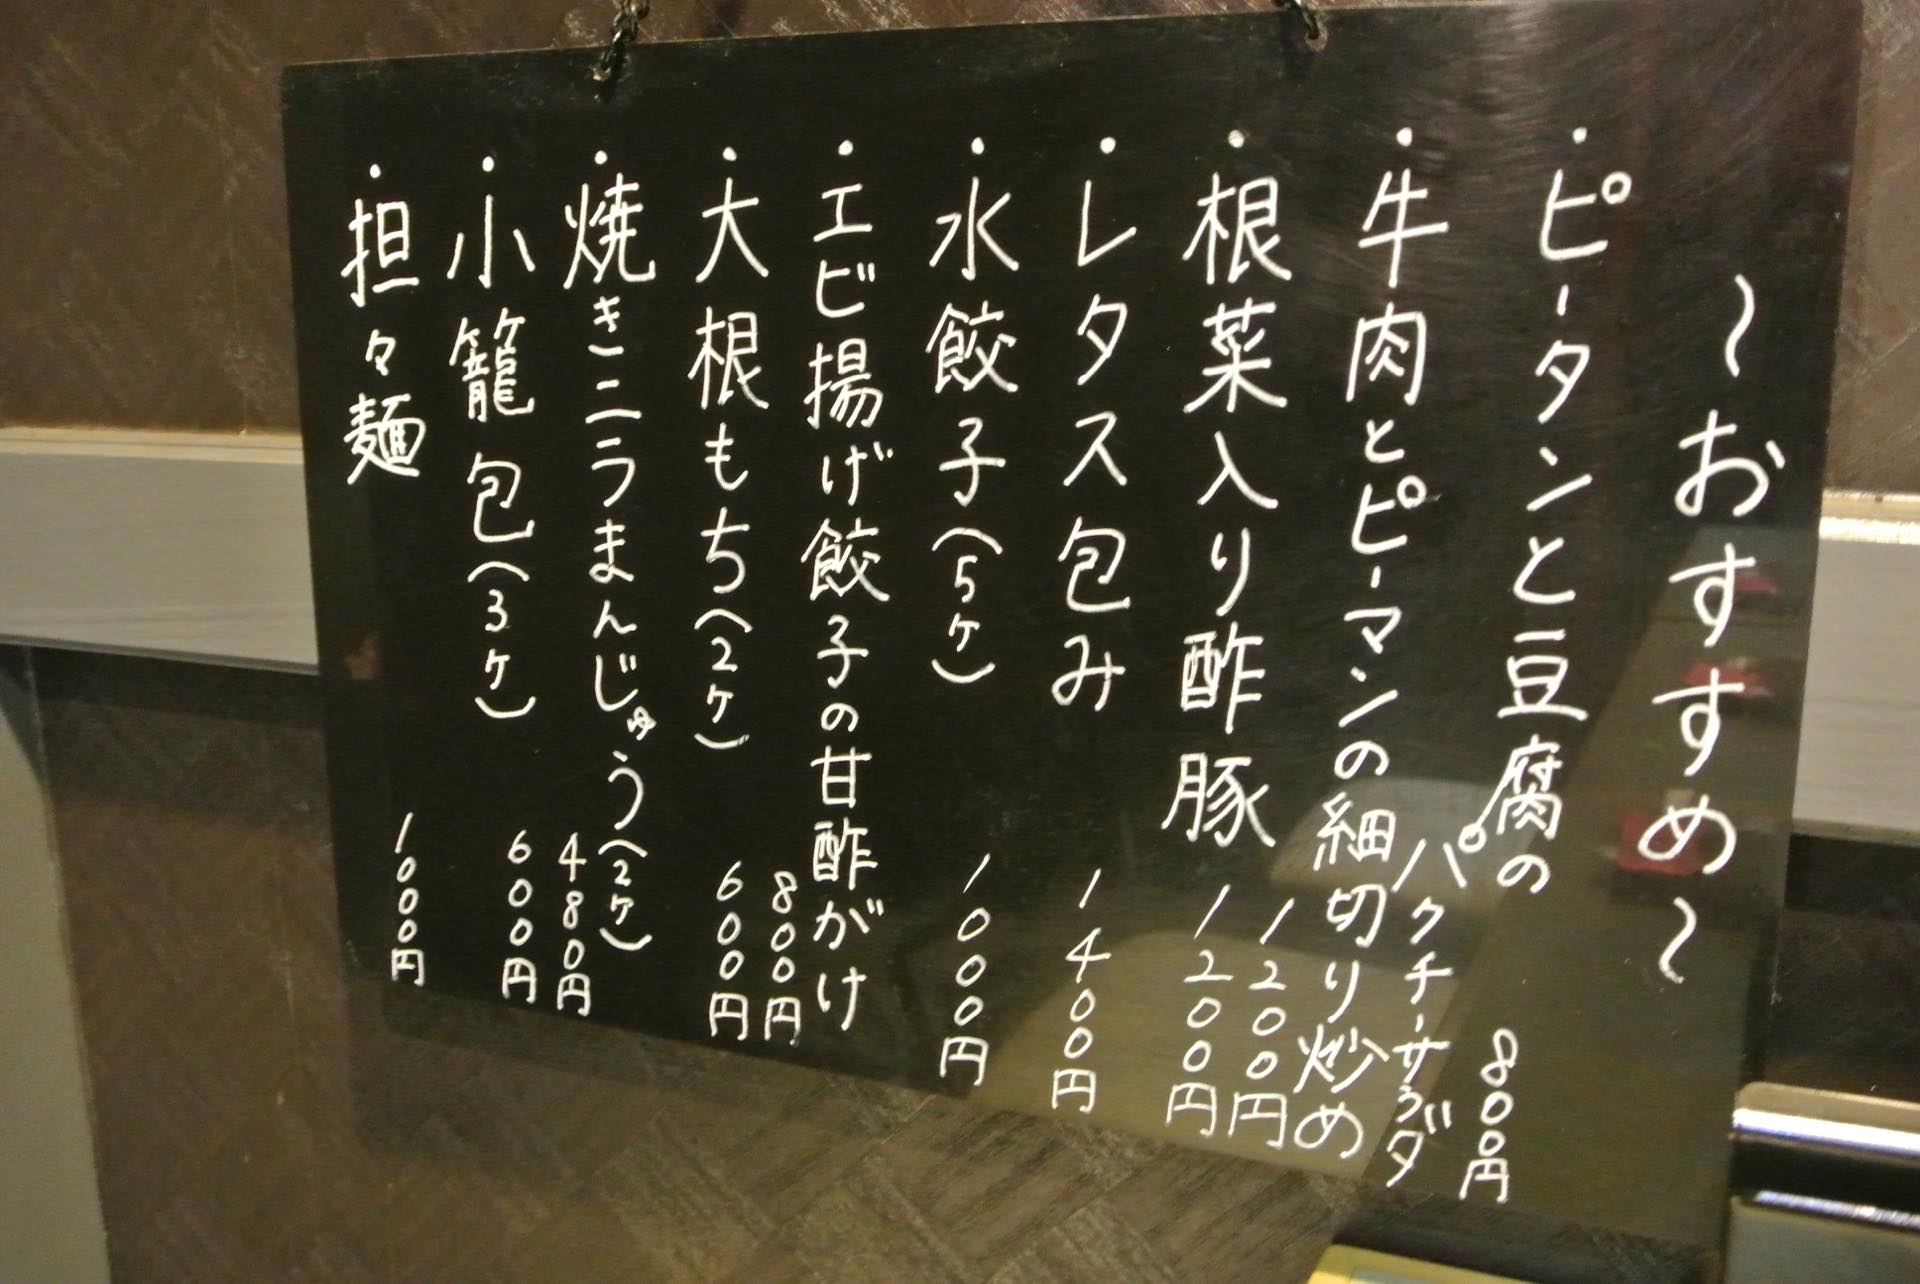 ～おすすめ～
・ピータンと豆腐の
パクチーサラダ
800円
・牛肉とピーマンの細切り炒め
1200円
・根菜入り酢豚
1200円
・レタス包み
1400円
・水餃子(5ヶ)
1000円
・エビ揚げ餃子の甘酢がけ
800円
・大根もち(2ヶ)
600円
・焼きニラまんじゅう(2ヶ)
480円
・小籠包(3ヶ)
600円
・担々麺
1000円